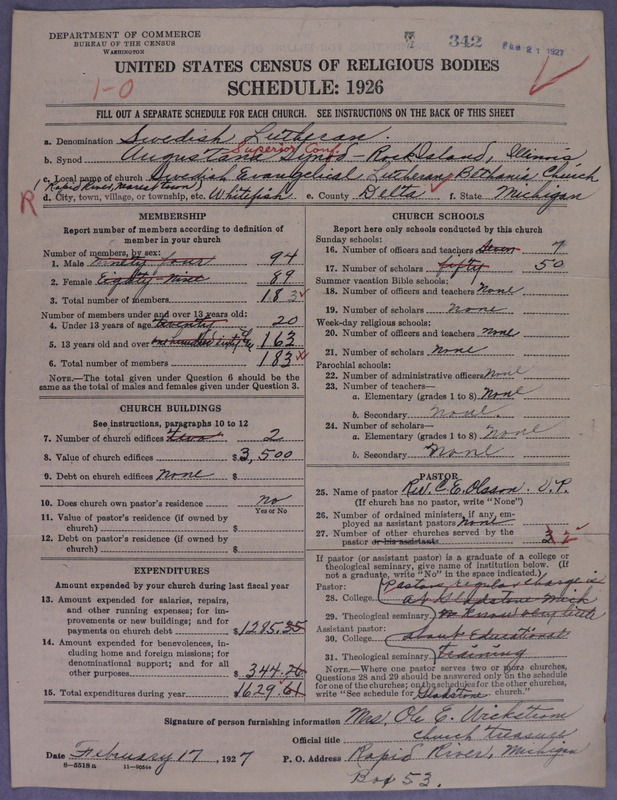 DEPARTMENT OF COMMERCE
BUREAU OF THE CENSUS
WASHINGTON
342
FEB 21 1927
UNITED STATES CENSUS OF RELIGIOUS BODIES
SCHEDULE: 1926
1-0
FILL OUT A SEPARATE SCHEDULE FOR EACH CHURCH. SEE INSTRUCTIONS ON THE BACK OF THIS SHEET
a. Denomination Swedish Lutheran.
Superior Conf.
b. Synod Augustana Synod - Rock Island, Illinois
c. Local name of church Swedish Evangelical Lutheran Bethania Church
(Rapid River, Masonville town)
R d. City, town, village, or township, etc. Whitefish e. County Delta f. State Michigan
MEMBERSHIP
Report number of members according to definition of
member in your church
Number of members, by sex:
1. Male Ninety four 94
2. Female Eighty Nine 89
3. Total number of members 183
Number of members under and over 13 years old:
4. Under 13 years of age twenty 20
5. 13 years old and over one hundred sixty 163
6. Total number of members 183
NOTE.—The total given under Question 6 should be the
same as the total of males and females given under Question 3.
CHURCH BUILDINGS
See instructions, paragraphs 10 to 12
7. Number of church edifices two 2
8. Value of church edifices $3,500
9. Debt on church edifices None $
10. Does church own pastor's residence? No
Yes or No
11. Value of pastor's residence (if owned by
church) $
12. Debt on pastor's residence (if owned by
church) $
EXPENDITURES
Amount expended by your church during last fiscal year
13. Amount expended for salaries, repairs,
and other running expenses; for im-
provements or new buildings; and for
payments on church debt $1285.35
14. Amount expended for benevolences, in-
cluding home and foreign missions; for
denominational support; and for all
other purposes $344.26
15. Total expenditures during year $1629.61
CHURCH SCHOOLS
Report here only schools conducted by this church
Sunday schools:
16. Number of officers and teachers Seven 7
17. Number of scholars fifty 50
Summer vacation Bible schools:
18. Number of officers and teachers None
19. Number of scholars None
Week-day religious schools:
20. Number of officers and teachers None
21. Number of scholars None
Parochial schools:
22. Number of administrative officers None
23. Number of teachers—
a. Elementary (grades 1 to 8) None
b. Secondary None.
24. Number of scholars—
a. Elementary (grades 1 to 8) None
b. Secondary None
PASTOR
25. Name of pastor Rev. C. E. Olsson. V.P.
(If church has no pastor, write "None")
26. Number of ordained ministers, if any, em-
ployed as assistant pastors None
27. Number of other churches served by the
pastor or his assistants 3 2
If pastor (or assistant pastor) is a graduate of a college or
theological seminary, give name of institution below. (If
not a graduate, write "No" in the space indicated.)
Pastor: Pastors regular charge is
28. College at Gladstone Mich
29. Theological seminary we know very little
Assistant pastor:
30. College about Educational
31. Theological seminary training
NOTE.—Where one pastor serves two or more churches,
Questions 28 and 29 should be answered only on the schedule
for one of the churches; on the schedules for the other churches,
write "See schedule for Gladstone church."
Signature of person furnishing information Mrs. Ole E. Wickstrom
Official title Church treasurer
Date February 17, 1927 P. O. Address Rapid River, Michigan
8-5518a
Box 53.